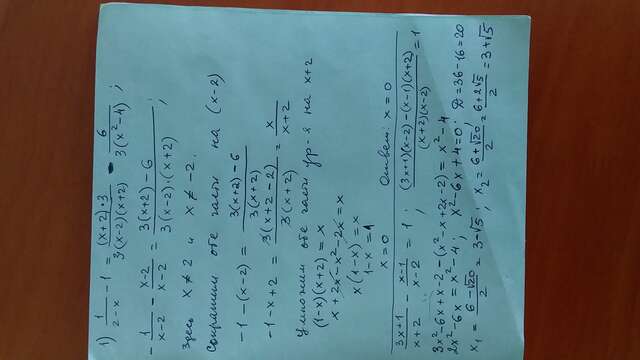 1) 1/(2-x) - 1 = (x+2)·3/(3·(x-2)(x+2)) - 6/(3(x²-4)) ;
- 1/(x-2) - (x-2)/(x-2) = (3(x+2)-6)/(3(x-2)·(x+2)) ;
Здесь x ≠ 2 и x ≠ -2.
Сократим обе части на (x-2)
-1-(x-2) = (3(x+2)-6)/(3(x+2))
-1-x+2 = 3(x+2-2)/(3(x+2)) = x/(x+2)
Умножим обе части ур-я на x+2
(1-x)(x+2) = x
x+2x-x²-2x = x
x(1-x) = x
1-x = 1
x = 0 Ответ: x = 0
(3x+1)/(x+2) - (x-1)/(x-2) = 1 ; ((3x+1)(x-2)-(x-1)(x+2))/((x+2)(x-2)) = 1
3x²-6x+x-2-(x²-x+2x-2) = x²-4
2x²-6x = x²-4 ; x²-6x+4=0 ; D=36-16=20
x₁ = (6-√20)/2 = 3-√5 ; x₂ = (6+√20)/2 = (6+2√5)/2 = 3+√5